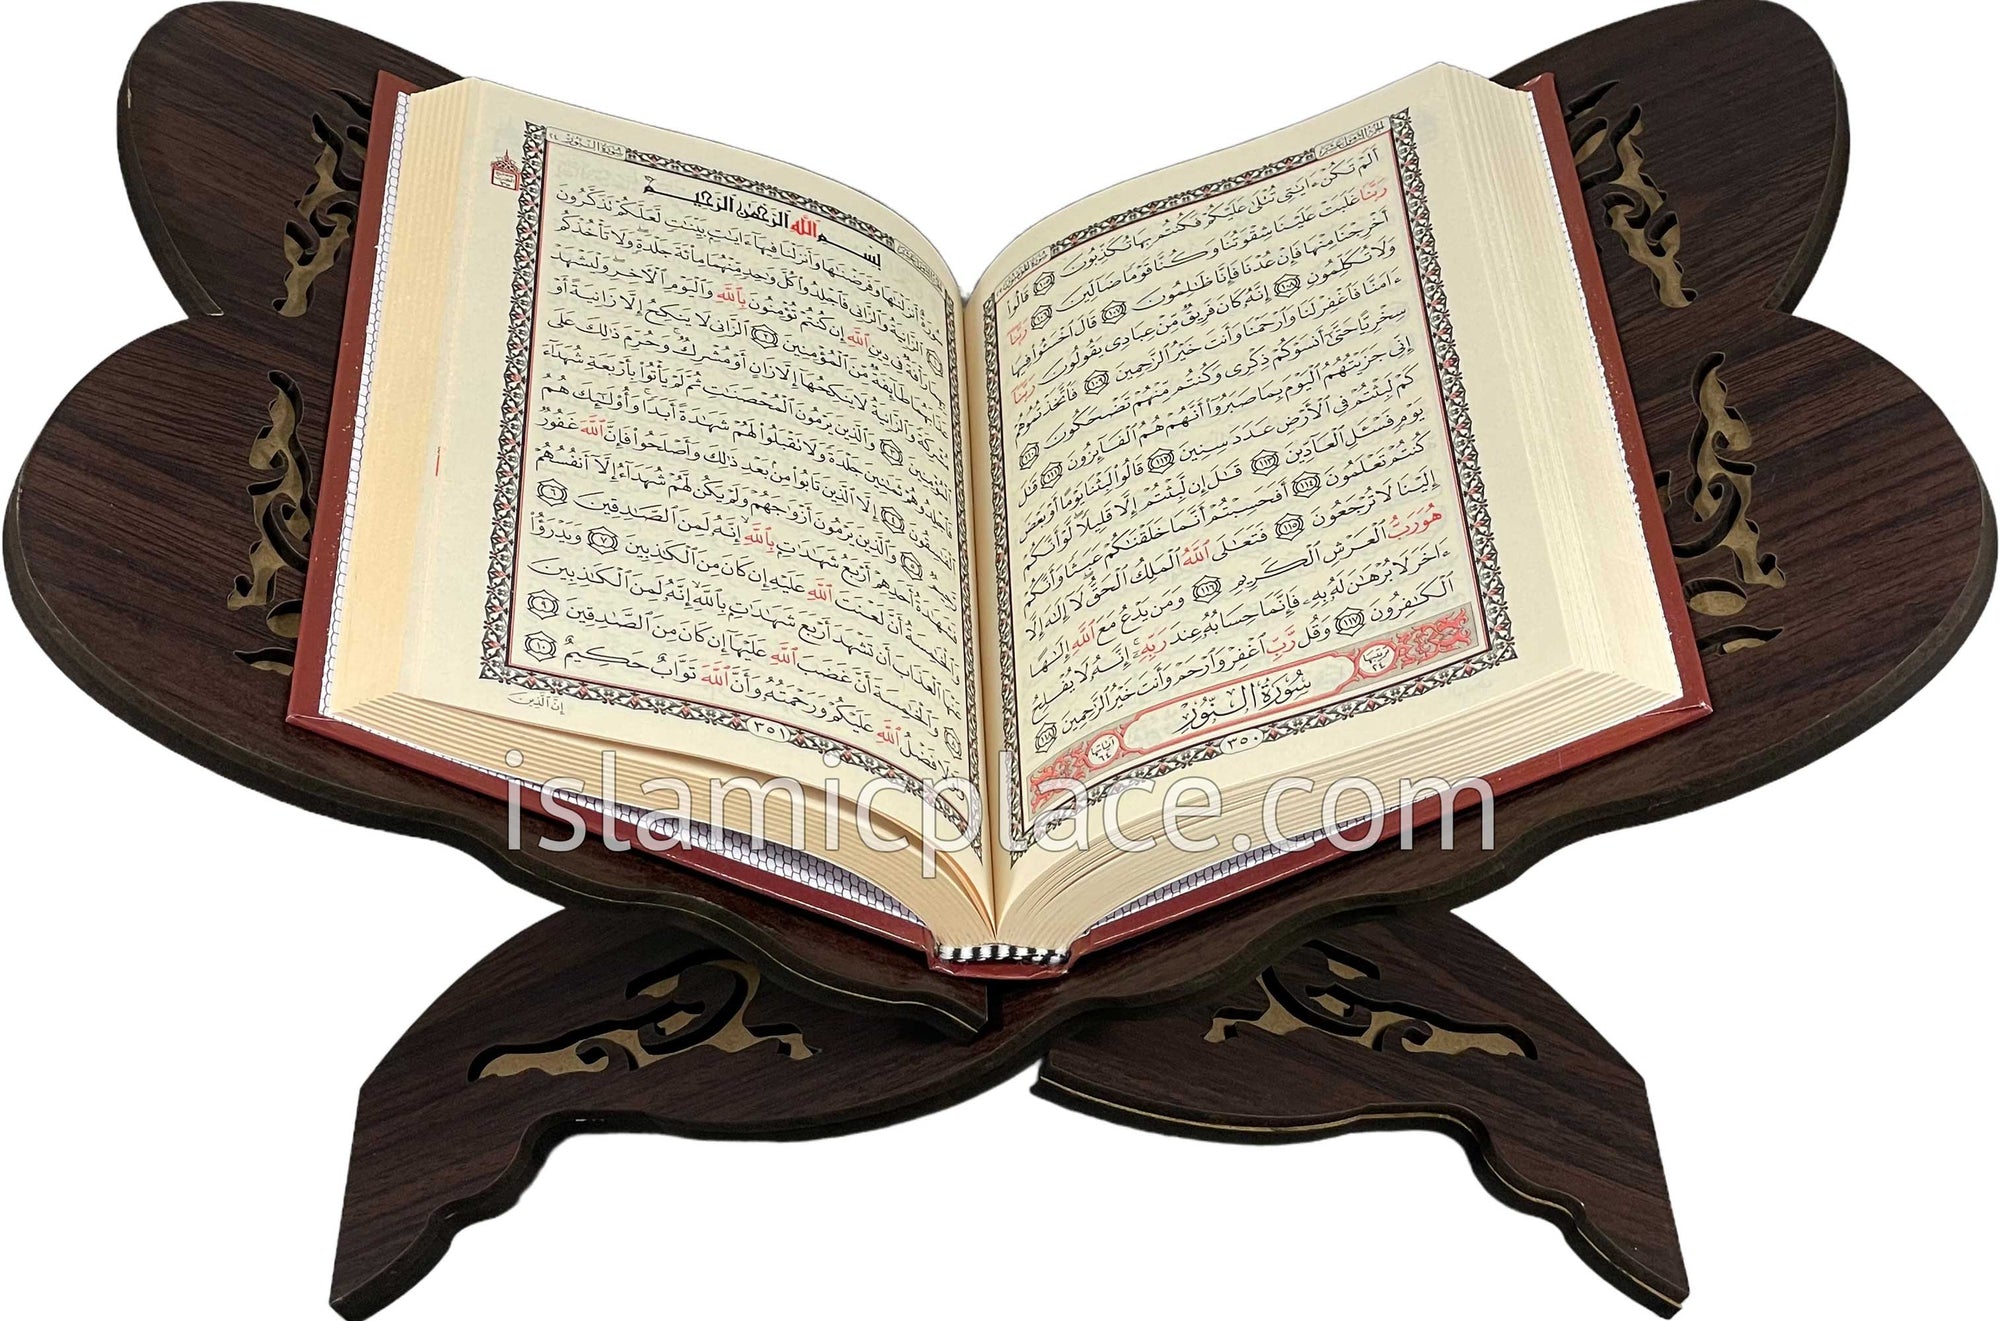 الجزء الثامن عشر
سورة المؤمنون
أَلَمْ تَكُنْ ءَايَٰتِي تُتْلَىٰ عَلَيْكُمْ فَكُنتُم بِهَا تُكَذِّبُونَ ١٠٥ قَالُوا۟
رَبَّنَا غَلَبَتْ عَلَيْنَا شِقْوَتُنَا وَكُنَّا قَوْمًا ضَآلِّينَ ١٠٦ رَبَّنَآ
أَخْرِجْنَا مِنْهَا فَإِنْ عُدْنَا فَإِنَّا ظَٰلِمُونَ ١٠٧ قَالَ ٱخْسَـُٔوا۟ فِيهَا
وَلَا تُكَلِّمُونِ ١٠٨ إِنَّهُۥ كَانَ فَرِيقٌ مِّنْ عِبَادِي يَقُولُونَ رَبَّنَآ
ءَامَنَّا فَٱغْفِرْ لَنَا وَٱرْحَمْنَا وَأَنتَ خَيْرُ ٱلرَّٰحِمِينَ ١٠٩ فَٱتَّخَذْتُمُوهُمْ
سِخْرِيًّا حَتَّىٰٓ أَنسَوْكُمْ ذِكْرِي وَكُنتُم مِّنْهُمْ تَضْحَكُونَ ١١٠
إِنِّي جَزَيْتُهُمُ ٱلْيَوْمَ بِمَا صَبَرُوٓا۟ أَنَّهُمْ هُمُ ٱلْفَآئِزُونَ ١١١ قَٰلَ
كَمْ لَبِثْتُمْ فِي ٱلْأَرْضِ عَدَدَ سِنِينَ ١١٢ قَالُوا۟ لَبِثْنَا يَوْمًا أَوْ بَعْضَ
يَوْمٍ فَسْـَٔلِ ٱلْعَآدِّينَ ١١٣ قَٰلَ إِن لَّبِثْتُمْ إِلَّا قَلِيلًا ۖ لَّوْ أَنَّكُمْ
كُنتُمْ تَعْلَمُونَ ١١٤ أَفَحَسِبْتُمْ أَنَّمَا خَلَقْنَٰكُمْ عَبَثًا وَأَنَّكُمْ
إِلَيْنَا لَا تُرْجَعُونَ ١١٥ فَتَعَٰلَى ٱللَّهُ ٱلْمَلِكُ ٱلْحَقُّ ۖ لَآ إِلَٰهَ إِلَّا
هُوَ رَبُّ ٱلْعَرْشِ ٱلْكَرِيمِ ١١٦ وَمَن يَدْعُ مَعَ ٱللَّهِ إِلَٰهًا
ءَاخَرَ لَا بُرْهَٰنَ لَهُۥ بِهِۦ فَإِنَّمَا حِسَابُهُۥ عِندَ رَبِّهِۦٓ ۚ إِنَّهُۥ لَا يُفْلِحُ
ٱلْكَٰفِرُونَ ١١٧ وَقُل رَّبِّ ٱغْفِرْ وَٱرْحَمْ وَأَنتَ خَيْرُ ٱلرَّٰحِمِينَ ١١٨
ترتيبها ٢٤ سُورَةُ النُّورِ آياتها ٦٤
٣٥٠
سورة النور ٢٤
بِسْمِ ٱللَّهِ ٱلرَّحْمَٰنِ ٱلرَّحِيمِ
سُورَةٌ أَنزَلْنَٰهَا وَفَرَضْنَٰهَا وَأَنزَلْنَا فِيهَآ ءَايَٰتٍۭ بَيِّنَٰتٍ لَّعَلَّكُمْ تَذَكَّرُونَ
١ ٱلزَّانِيَةُ وَٱلزَّانِي فَٱجْلِدُوا۟ كُلَّ وَٰحِدٍ مِّنْهُمَا مِا۟ئَةَ جَلْدَةٍ ۖ وَلَا تَأْخُذْكُم
بِهِمَا رَأْفَةٌ فِي دِينِ ٱللَّهِ إِن كُنتُمْ تُؤْمِنُونَ بِٱللَّهِ وَٱلْيَوْمِ ٱلْءَاخِرِ ۖ وَلْيَشْهَدْ
عَذَابَهُمَا طَآئِفَةٌ مِّنَ ٱلْمُؤْمِنِينَ ٢ ٱلزَّانِي لَا يَنكِحُ إِلَّا زَانِيَةً أَوْ
مُشْرِكَةً وَٱلزَّانِيَةُ لَا يَنكِحُهَآ إِلَّا زَانٍ أَوْ مُشْرِكٌ ۚ وَحُرِّمَ ذَٰلِكَ عَلَى
ٱلْمُؤْمِنِينَ ٣ وَٱلَّذِينَ يَرْمُونَ ٱلْمُحْصَنَٰتِ ثُمَّ لَمْ يَأْتُوا۟ بِأَرْبَعَةِ شُهَدَآءَ
فَٱجْلِدُوهُمْ ثَمَٰنِينَ جَلْدَةً وَلَا تَقْبَلُوا۟ لَهُمْ شَهَٰدَةً أَبَدًا ۚ وَأُو۟لَٰٓئِكَ هُمُ
ٱلْفَٰسِقُونَ ٤ إِلَّا ٱلَّذِينَ تَابُوا۟ مِنۢ بَعْدِ ذَٰلِكَ وَأَصْلَحُوا۟ فَإِنَّ ٱللَّهَ غَفُورٌ
رَّحِيمٌ ٥ وَٱلَّذِينَ يَرْمُونَ أَزْوَٰجَهُمْ وَلَمْ يَكُن لَّهُمْ شُهَدَآءُ إِلَّآ أَنفُسُهُمْ
فَشَهَٰدَةُ أَحَدِهِمْ أَرْبَعُ شَهَٰدَٰتٍۭ بِٱللَّهِ ۙ إِنَّهُۥ لَمِنَ ٱلصَّٰدِقِينَ ٦
وَٱلْخَٰمِسَةُ أَنَّ لَعْنَتَ ٱللَّهِ عَلَيْهِ إِن كَانَ مِنَ ٱلْكَٰذِبِينَ ٧ وَيَدْرَؤُا۟
عَنْهَا ٱلْعَذَابَ أَن تَشْهَدَ أَرْبَعَ شَهَٰدَٰتٍۭ بِٱللَّهِ ۙ إِنَّهُۥ لَمِنَ ٱلْكَٰذِبِينَ
٨ وَٱلْخَٰمِسَةَ أَنَّ غَضَبَ ٱللَّهِ عَلَيْهَآ إِن كَانَ مِنَ ٱلصَّٰدِقِينَ ٩
وَلَوْلَا فَضْلُ ٱللَّهِ عَلَيْكُمْ وَرَحْمَتُهُۥ وَأَنَّ ٱللَّهَ تَوَّابٌ حَكِيمٌ ١٠
٣٥١
إِنَّ ٱلَّذِينَ
islamicplace.com